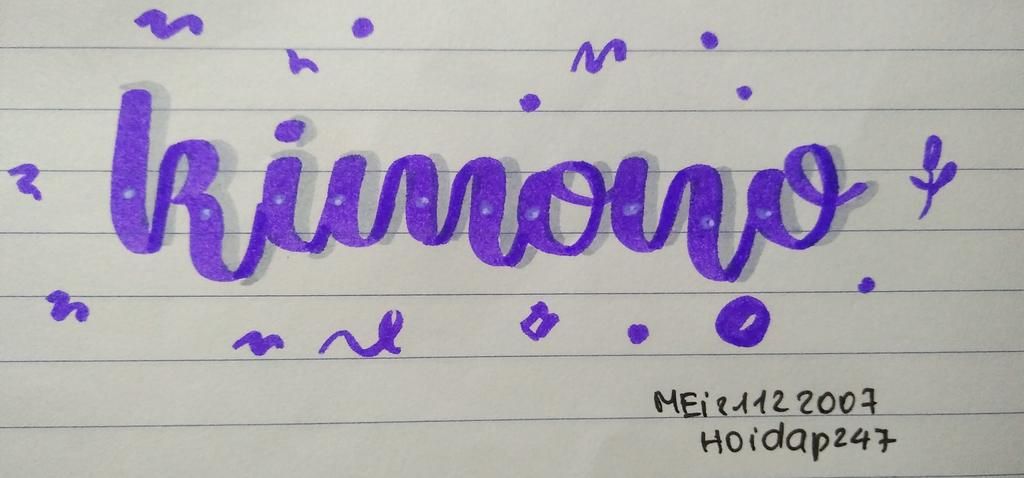 kimono
MEi21122007
Hoidap247